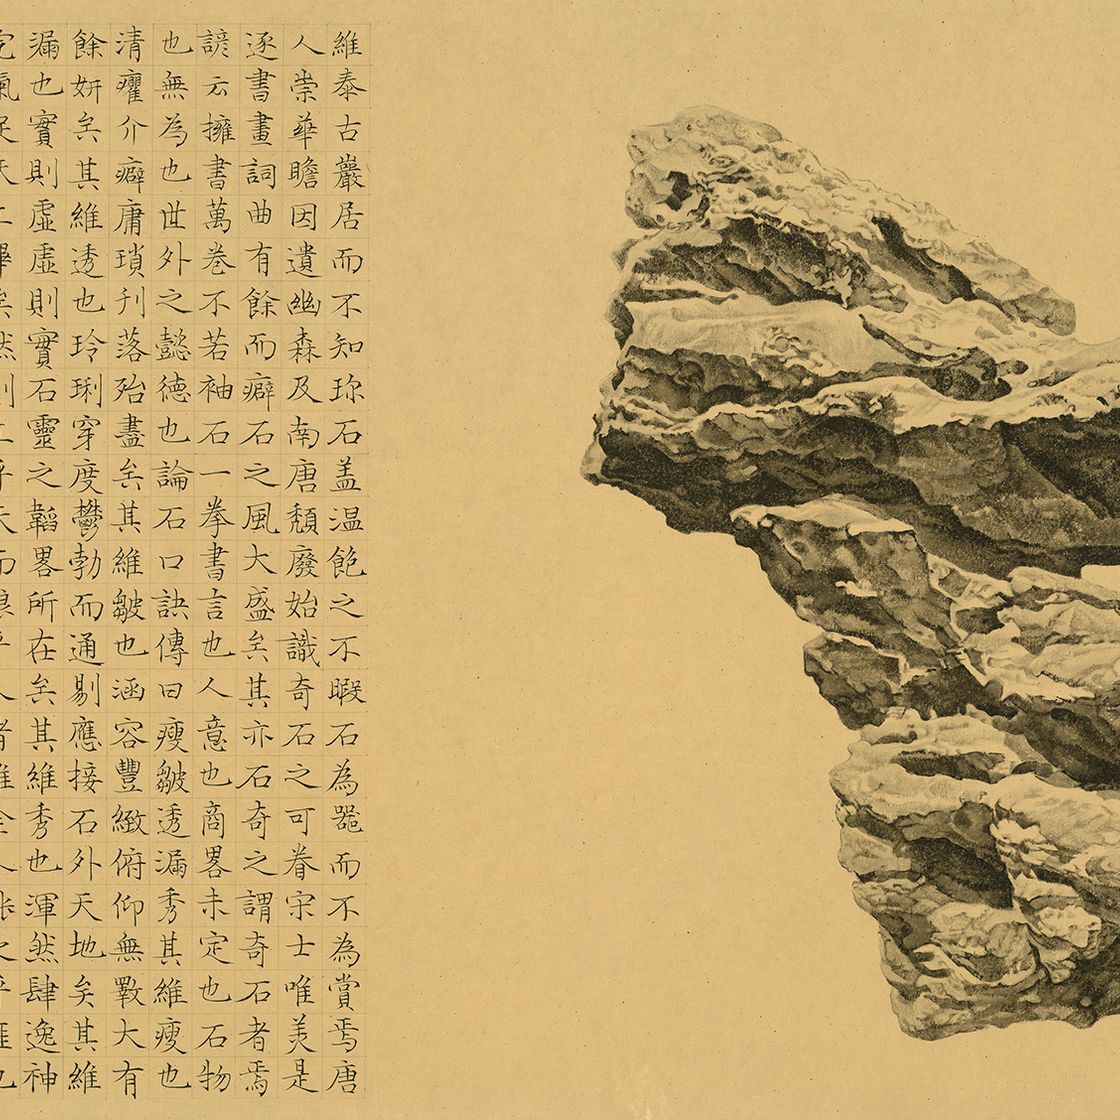 維泰古巖居而不知珎石盖温飽之不暇石為噐而不為賞焉唐
人崇華瞻因遺幽森及南唐頹廢始識奇石之可眷宋士唯美是
逐書畫詞曲有餘而癖石之風大盛矣其亦石奇之謂奇石者焉
諺云擁書萬巻不若袖石一拳書言也人意也商畧未定也石物
也無為也世外之懿德也論石口訣傳曰瘦皺透漏秀其維瘦也
清癯介癖庸瑣刋落殆盡矣其維皺也涵容豐緻俯仰無斁大有
餘妍矣其維透也玲琍穿度鬱勃而通剔應接石外天地矣其維
漏也實則虛虛則實石靈之韜畧所在矣其維秀也渾然肆逸神